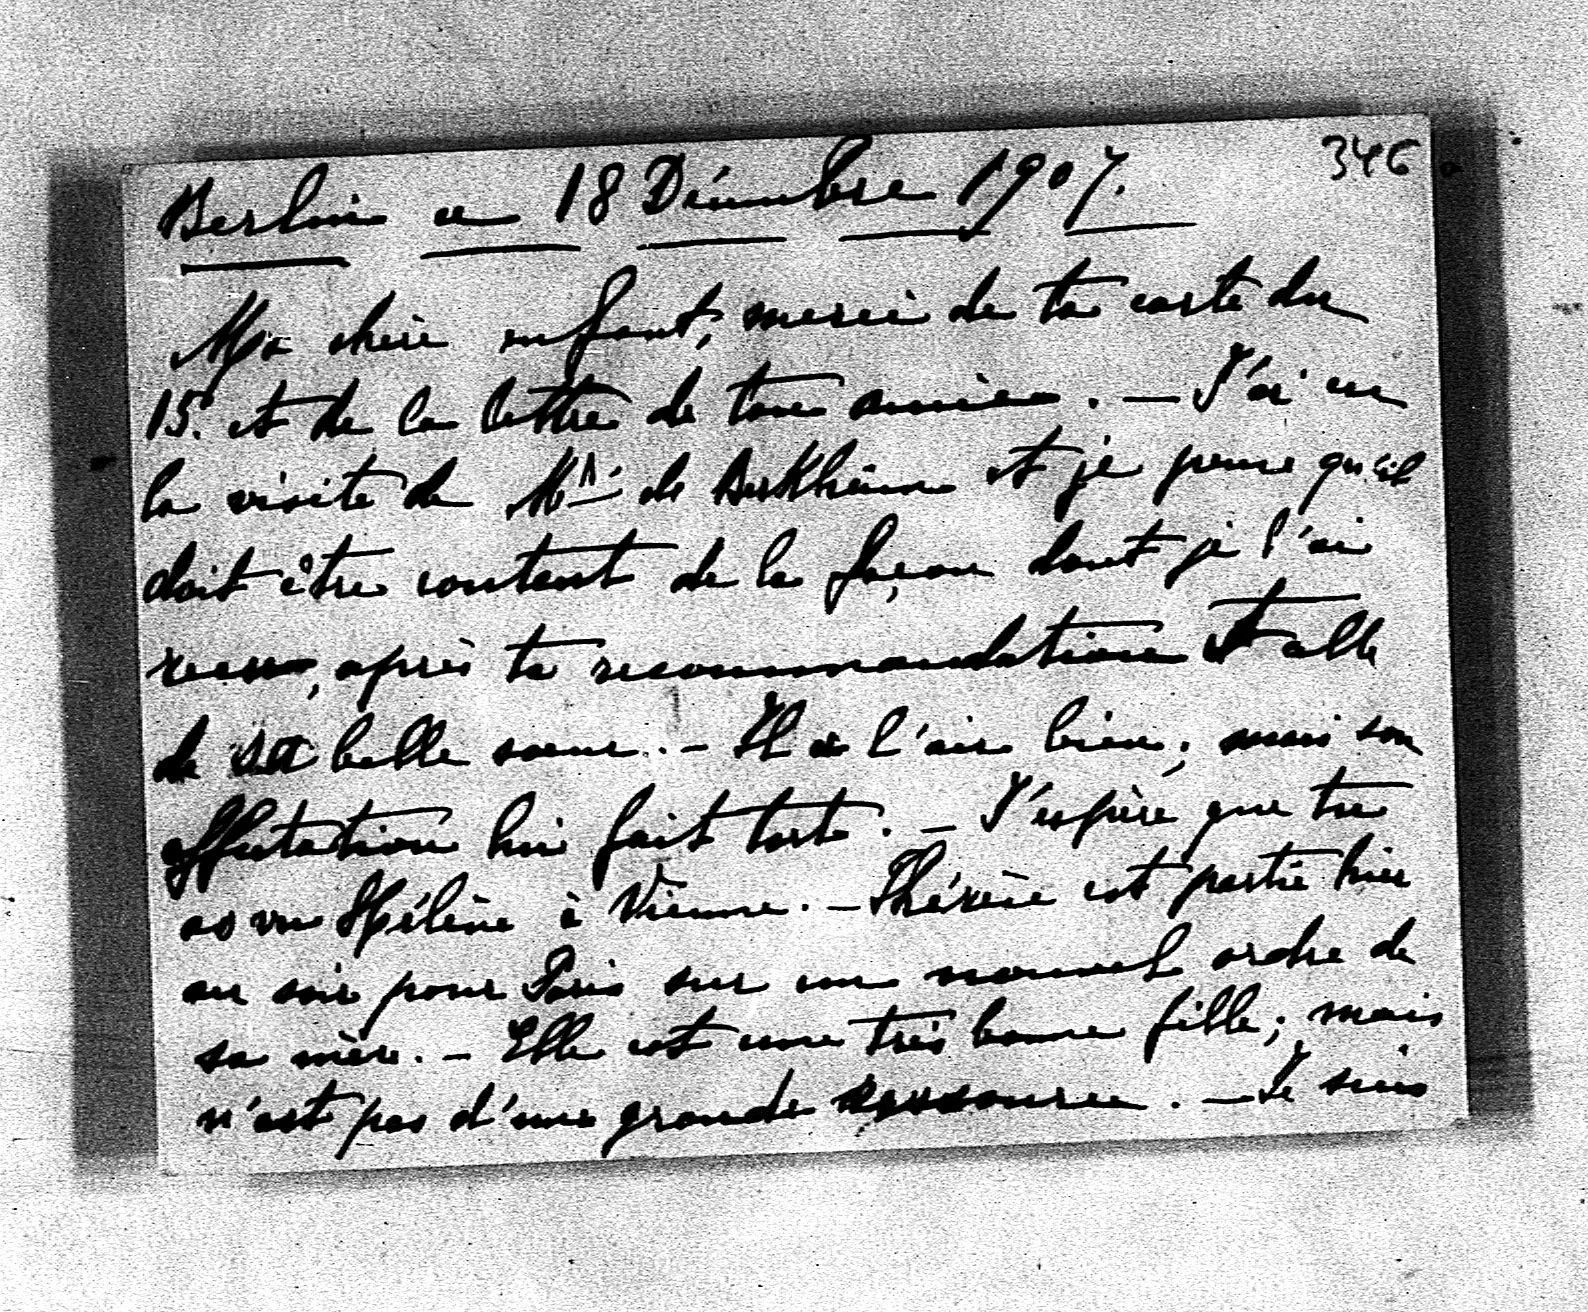 346
Berlin ce 18 Décembre 1907.
Ma chère enfant, merci de ta carte du
15. et de la lettre de ton amie. — J'ai eu
la visite de Mr de Berkheim et je pense qu'il
doit être content de la façon dont je l'ai
recu, après ta recommandation et celle
de sa belle soeur. — Il a l'air bien; mais son
affectation lui fait tort. — J'espère que tu
as vu Hélène à Vienne. — Thérèse est partie hier
au soir pour Paris sur un nouvel ordre de
sa mère. — Elle est une très bonne fille; mais
n'est pas d'une grande ressource. — Je suis